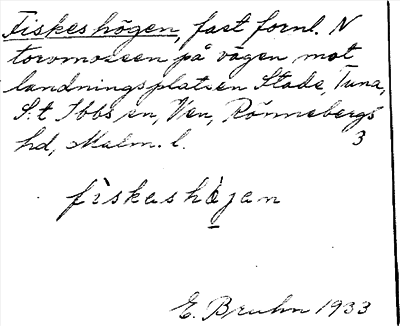 Fiskeshögen, fast fornl. N
torvmossen på vägen mot
landningsplatsen Stade, Tuna,
S:t Ibbs sn, Ven, Rönnebergs
hd, Malm. l. 3
fìskeshö̀jan
E. Bruhn 1933